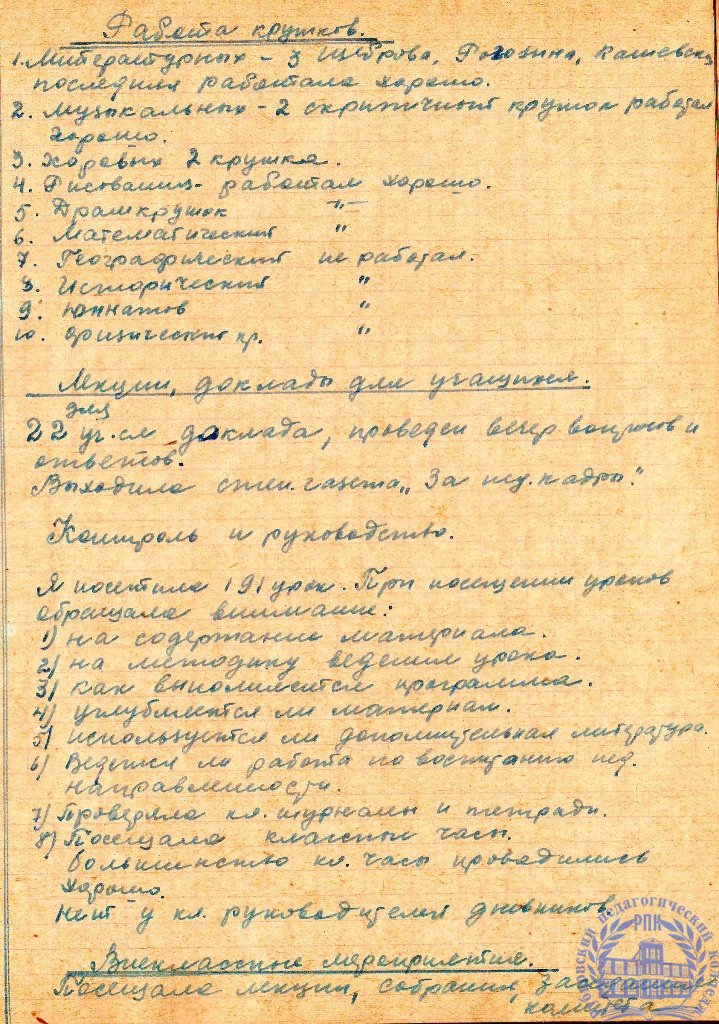 Работа кружков.
1. Литературных - 3 Щеброва, Рогозина, Кашевская
последняя работала хорошо.
2. Музыкальных - 2 скрипичный кружок работал
хорошо.
3. Хоровых 2 кружка.
4. Рисования - работал хорошо.
5. Драмкружок -"-
6. Математический "
7. Географический не работал.
8. Исторический "
9. Юннатов "
10. Физический кр. "
Лекции, доклады для учащихся.
для
22 уч-ся доклада, проведен вечер вопросов и
ответов.
Выходила стен. газета „За пед. кадры."
Контроль и руководство.
Я посетила 191 урок. При посещении уроков
обращала внимание:
1) на содержание материала.
2) на методику ведения урока.
3) как выполняется программа.
4) углубляется ли материал.
5) используется ли дополнительная литература.
6) Ведется ли работа по воспитанию пед.
направленности.
7) Проверяла кл. журналы и тетради.
8) Посещала классные часы.
большинство кл. часы проводились
хорошо.
Нет у кл. руководителей дневников
Внеклассные мероприятия.
Посещала лекции, собрания, заседание
комитета
педагогический колледж
РПК